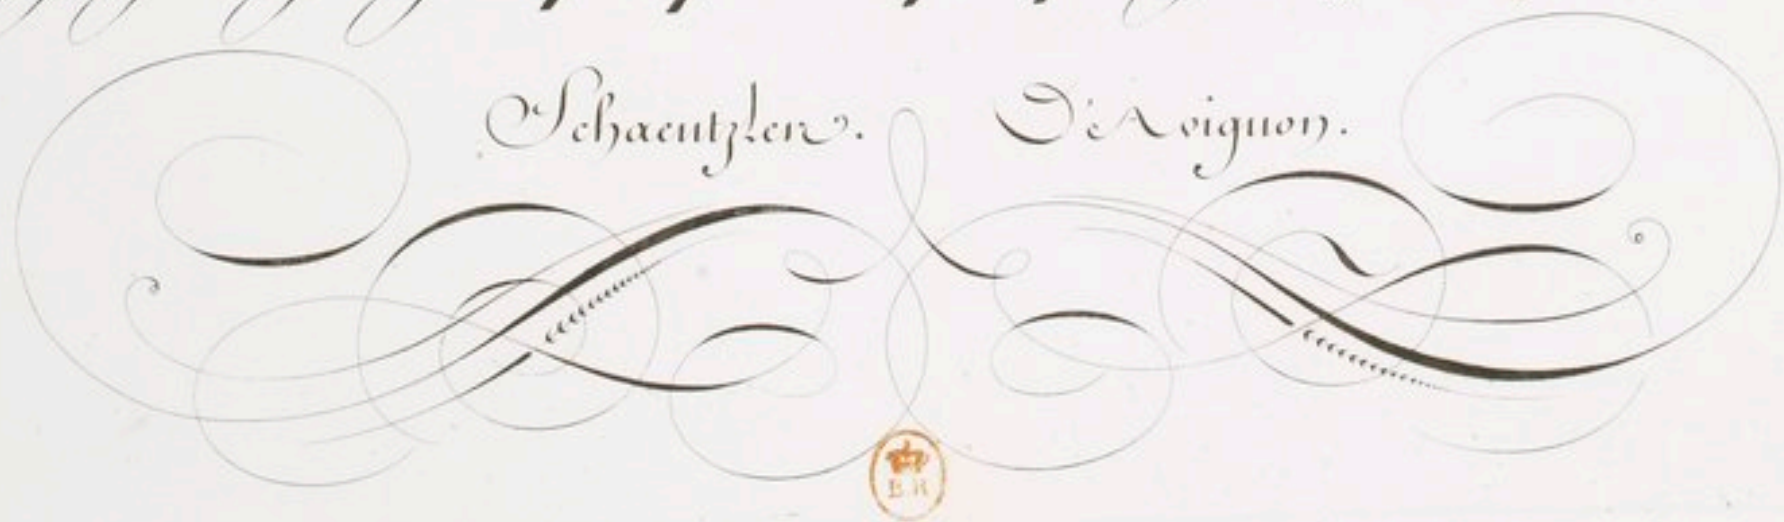 Schaentzlen. D'Avignon.
B.R